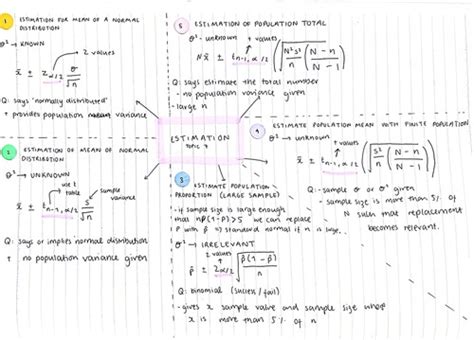 1 ESTIMATION FOR MEAN OF A NORMAL
DISTRIBUTION
σ² → KNOWN
z values
x̄ ± z α/2 σ/√n
Q: says 'normally distributed'
+ provides population variance
2 ESTIMATION OF MEAN OF NORMAL
DISTRIBUTION
σ² → UNKNOWN
use t table
sample variance
x̄ ± t n-1, α/2 s/√n
Q: says or implies normal distribution
+ no population variance given
ESTIMATION
TOPIC 7
5 ESTIMATION OF POPULATION TOTAL
σ² - unknown t values
Nx̄ ± t n-1, α/2 (√(N²s²/n ((N-n)/(N-1))))
Q: says estimate the total number
- no population variance given
- large n
4 ESTIMATE POPULATION MEAN WITH FINITE POPULATION
σ² → unknown
t values
x̄ ± t n-1, α/2 (√(s²/n ((N-n)/(N-1))))
Q: - sample σ or σ² given
- sample size is more than 5% of
N such that replacement
becomes relevant.
3 ESTIMATE POPULATION
PROPORTION (LARGE SAMPLE)
- if sample size is large enough
that nP(1-P)>5 we can replace
P with p̂ → standard normal if n is large
σ² → IRRELEVANT
z values
p̂ ± z α/2 √(p̂(1-p̂)/n)
Q: binomial (success/fail)
- gives x sample value and sample size where
x is more than 5% of n